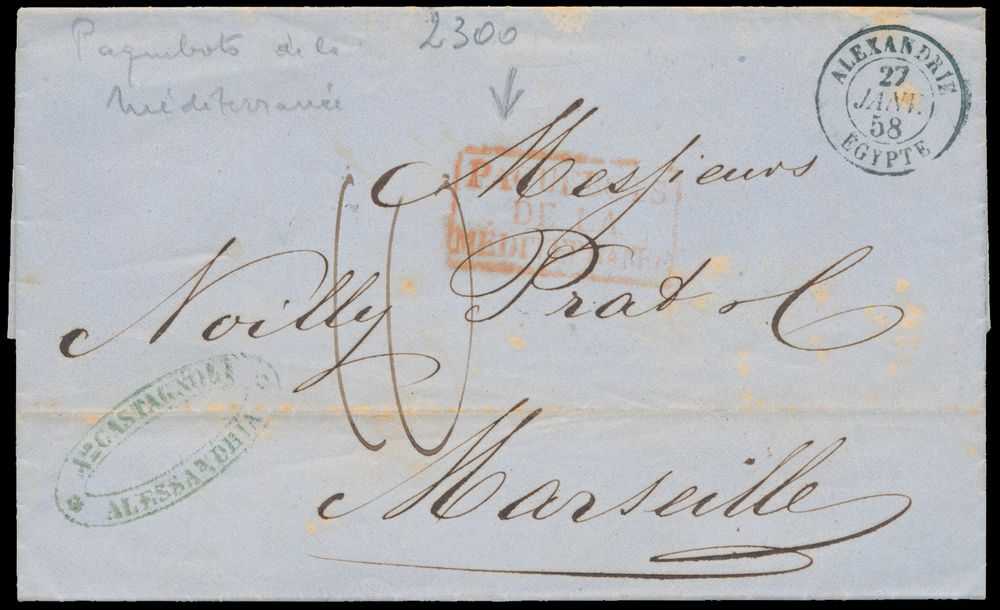 Paquebots de la
Méditerranée
2300
ALEXANDRIE
27
JANV.
58
EGYPTE
PAQUEBOTS
DE LA
MÉDITERRANÉE
10
Messieurs
Noilly Prat & C
Marseille
CASTAGNOLI
ALESSANDRIA